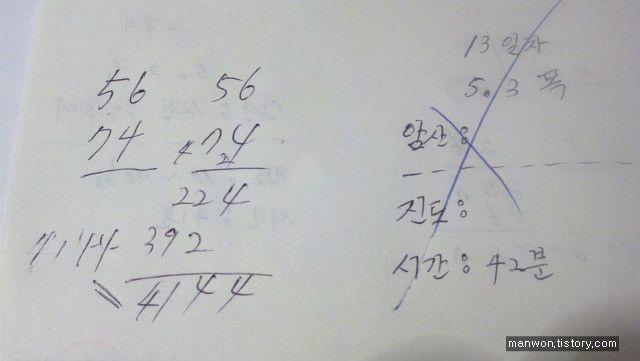 56 56
74 × 74
2
224
4144 392
4144
13일자
5.3 폭
암산:
진도:
시간: 42분
manwon.tistory.com